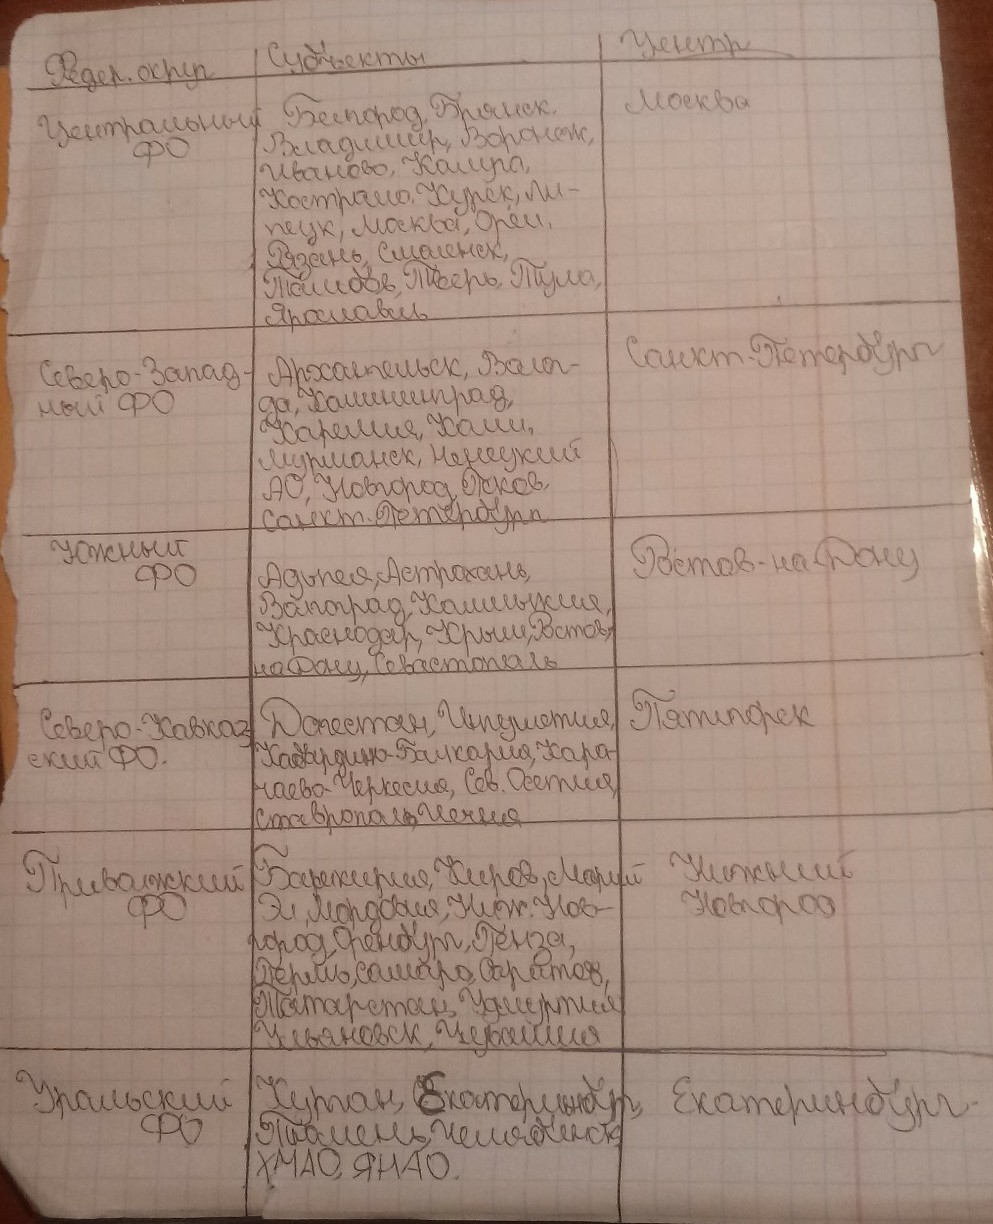 Федер. округ Субъекты Центр
Центральный ФО
Белгород, Брянск,
Владимир, Воронеж,
Иваново, Калуга,
Кострома, Курск, Ли-
пецк, Москва, Орёл,
Рязань, Смоленск,
Тамбов, Тверь, Тула,
Ярославль
Москва
Северо-Запад-
ный ФО
Архангельск, Волог-
да, Калининград,
Карелия, Коми,
Мурманск, Ненецкий
АО, Новгород, Псков,
Санкт-Петербург
Санкт-Петербург
Южный
ФО
Адыгея, Астрахань,
Волгоград, Калмыкия,
Краснодар, Крым, Ростов-
на Дону, Севастополь
Ростов-на-Дону
Северо-Кавказ
ский ФО.
Дагестан, Ингушетия,
Кабардино-Балкария, Кара-
чаево-Черкесия, Сев. Осетия,
Ставрополь, Чечня
Пятигорск
Приволжский
ФО
Башкирия, Киров, Марий
Эл, Мордовия, Ниж. Нов-
город, Оренбург, Пенза,
Пермь, Самара, Саратов,
Татарстан, Удмуртия
Ульяновск, Чувашия
Нижний
Новгород
Уральский
ФО
Курган, Екатеринбург,
Тюмень, Челябинск
ХМАО, ЯНАО.
Екатеринбург